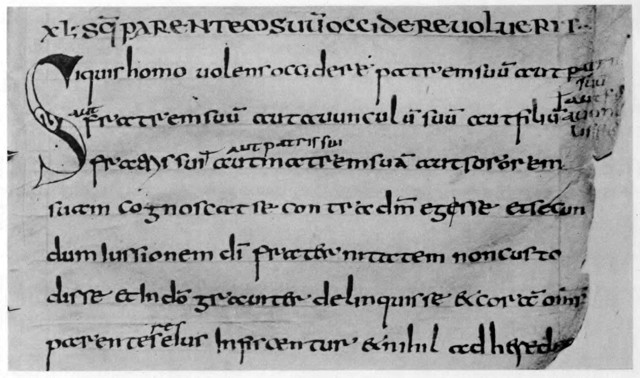 XL; SIQ PARENTEM SUŪ OCCIDERE UOLUERIT
Siquis homo uolens occidere patrem suū aut
suū
aut
fratrem suū aut auunculū suū aut filiū
aut patris sui
fratris sui aut matrem suā aut sororem
suam cognoscat se contra dm̄ egesse et secun
dum iussionem dī fraternitatem non custo
disse et in dō grauiter delinquisse & corā
res
parentes eius infiscentur & nihil ad herede